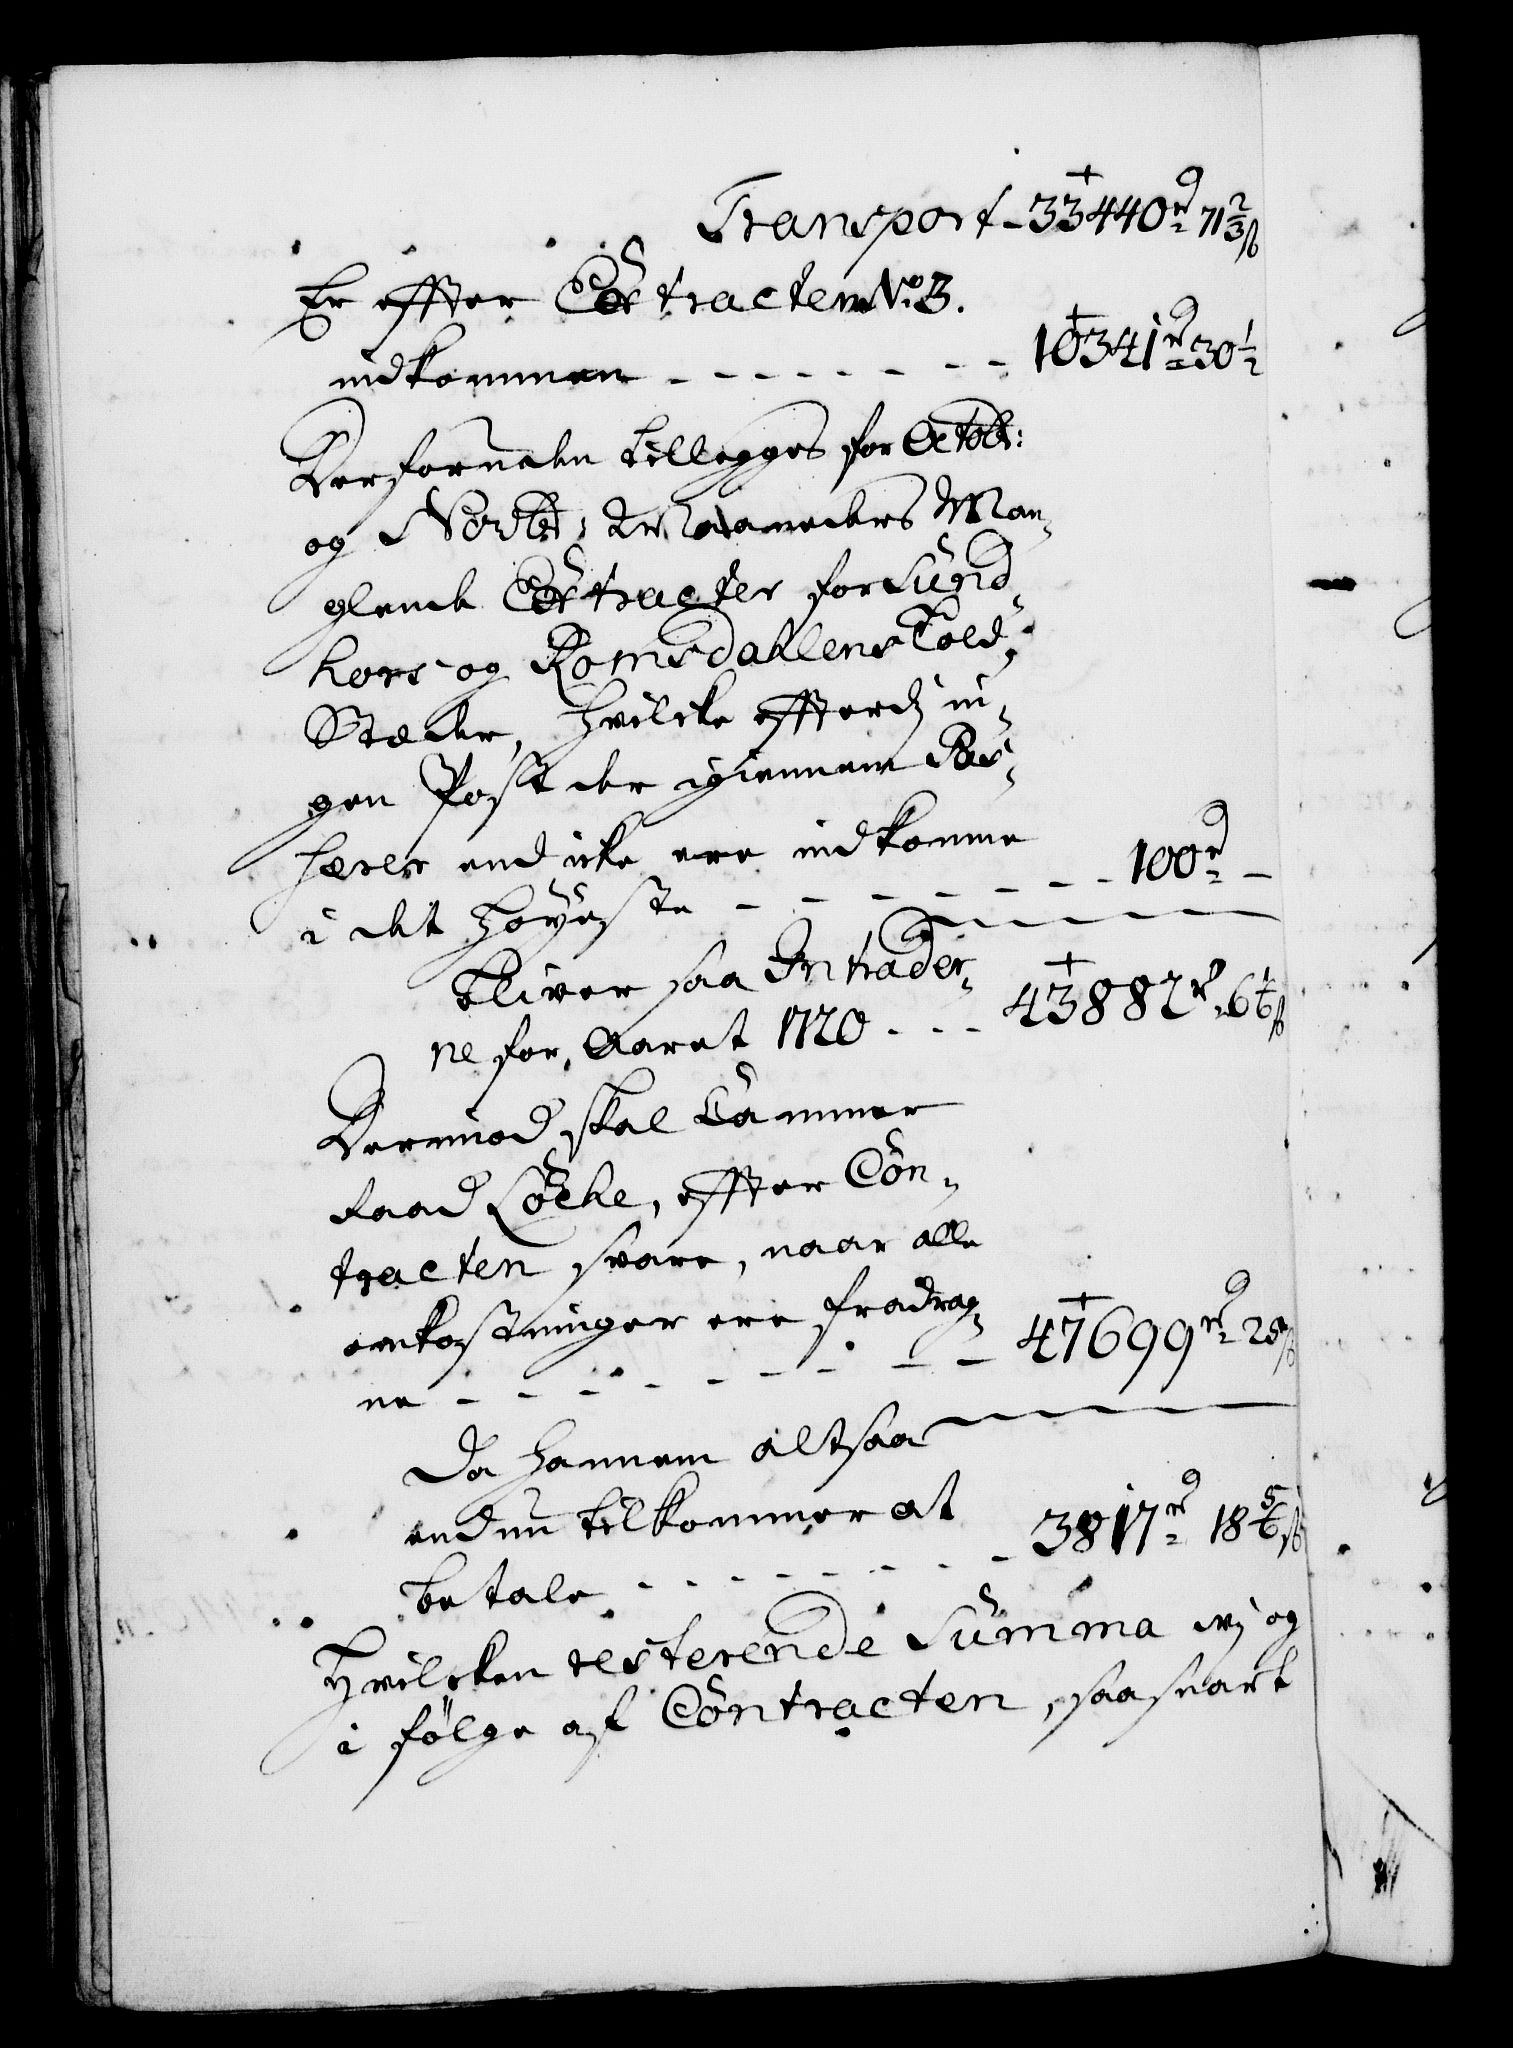 Transport - 33440 rd 71 2/3 ß
Er effter Extracten No 3.
indkommen - - - - - - - 10341 rd 30 1/2
Derforuden tillegges for Octobr:
og Novbr: 2 Maaneders Man-
glende Extracter for Sund-
hors- og Romsdahlens Told-
Stæder, hvilcke effterdj in-
gen Post der igiennem Pas-
serer end icke ere indkomne
i det høyeste - - - - - - - 100 rd -
bliver saa Intrader-
ne for Aaret 1720 - - - 43882 rd 6 1/6 ß
Dermod skal Cammer
Raad Löche, effter Con-
tracten svare, naar alle
omkostninger ere fradrag-
ne - - - - - - - - - 47699 rd 25 ß
Da hannem altsaa
endnu tilkommer at
betale - - - - - - - 3817 rd 18 5/6 ß
Hvilcken resterende Summa vj og
i følge af Contracten, saasnart